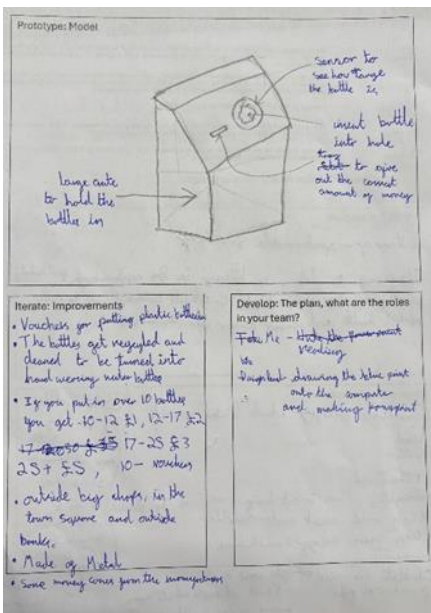 Prototype: Model
sensor to
see how large
the bottle is
insert bottle
into hole
to give
out the correct
amount of money
large crate
to hold the
bottles in
Iterate: Improvements
• Vouchers for putting plastic bottles in
• The bottles get recycled and
cleaned to be turned into
hard wearing water bottles
• If you put in over 10 bottles
you get 10-12 £1, 12-17 £2
17-25 £3
25+ £5, 10- vouchers
• outside big shops, in the
town square and outside
banks.
• Made of Metal
• Some money comes from the
Develop: The plan, what are the roles
in your team?
Me -
drawing the blue print
onto the
and making